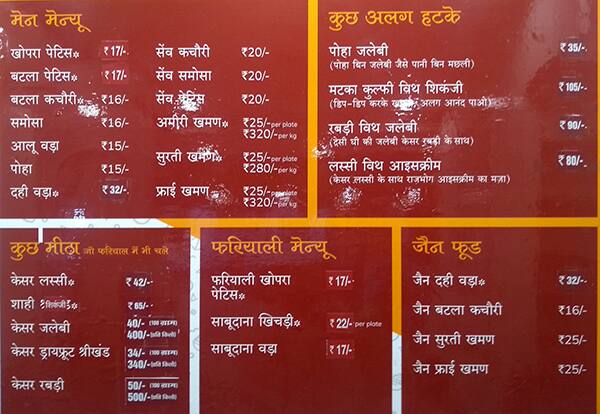 मेन मेन्यू
खोपरा पेटिस* ₹17/-
बटला पेटिस* ₹17/-
बटला कचौरी* ₹16/-
समोसा ₹16/-
आलू वड़ा ₹15/-
पोहा ₹15/-
दही वड़ा* ₹32/-
सेंव कचौरी ₹20/-
सेंव समोसा ₹20/-
सेंव पेटिस ₹20/-
अमीरी खमण* ₹25/-per plate
₹320/-per kg
सुरती खमण* ₹25/-per plate
₹280/-per kg
फ्राई खमण ₹25/-per plate
₹320/-per kg
कुछ अलग हटके
पोहा जलेबी ₹35/-
(पोहा बिन जलेबी जैसे पानी बिन मछली)
मटका कुल्फी विथ शिकंजी ₹105/-
(डिप-डिप करके खाओ / अलग आनंद पाओ)
रबड़ी विथ जलेबी ₹90/-
(देसी घी की जलेबी केसर रबड़ी के साथ)
लस्सी विथ आइसक्रीम ₹80/-
(केसर लस्सी के साथ राजभोग आइसक्रीम का मज़ा)
कुछ मीठा जो फरियाल में भी चले
केसर लस्सी* ₹42/-
शाही शिकंजी* ₹65/-
केसर जलेबी 40/- (100 ग्राम)
400/-(प्रति किलो)
केसर ड्रायफ्रूट श्रीखंड 34/- (100 ग्राम)
340/-(प्रति किलो)
केसर रबड़ी 50/- (100 ग्राम)
500/-(प्रति किलो)
फरियाली मेन्यू
फरियाली खोपरा ₹17/-
पेटिस*
साबूदाना खिचड़ी* ₹22/-per plate
साबूदाना वड़ा ₹17/-
जैन फूड
जैन दही वड़ा* ₹32/-
जैन बटला कचौरी ₹16/-
जैन सुरती खमण ₹25/-
जैन फ्राई खमण ₹25/-